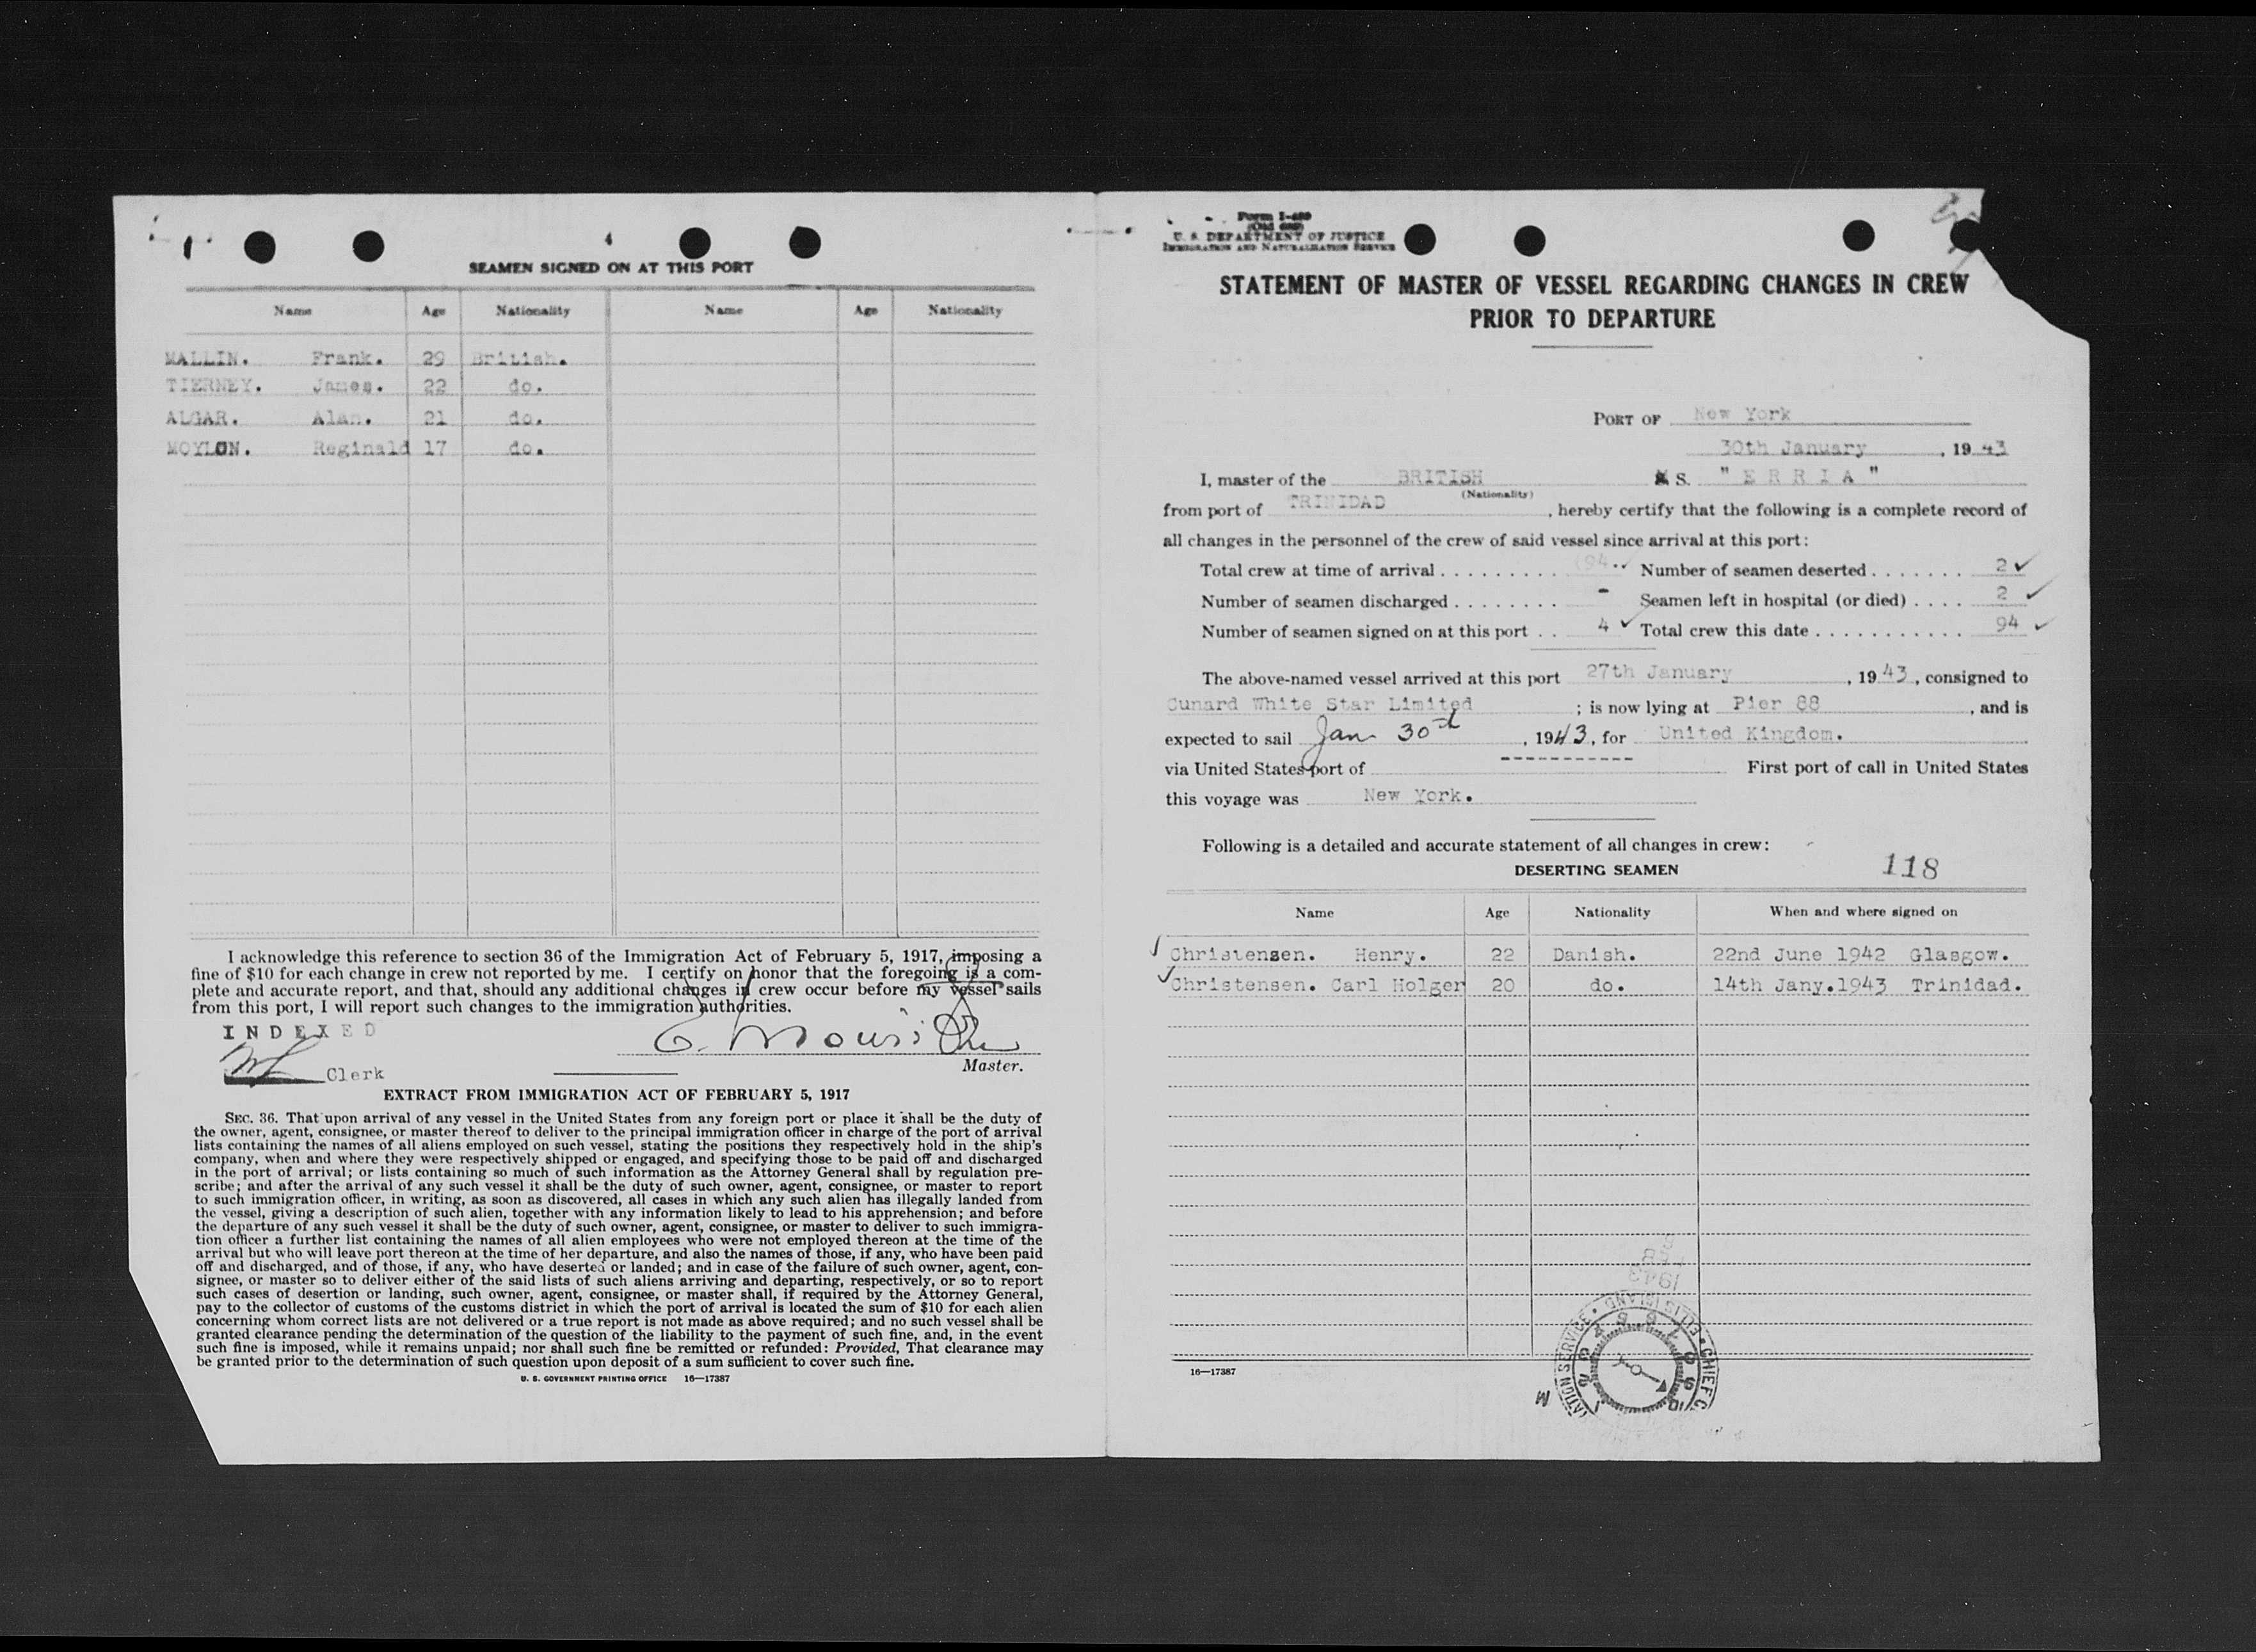 SEAMEN SIGNED ON AT THIS PORT
Name Age Nationality Name Age Nationality
MALLIN. Frank. 29 British.
TIERNEY. James. 22 do.
ALGAR. Alan. 21 do.
MOYLON. Reginald 17 do.
I acknowledge this reference to section 36 of the Immigration Act of February 5, 1917, imposing a
fine of $10 for each change in crew not reported by me. I certify on honor that the foregoing is a com-
plete and accurate report, and that, should any additional changes in crew occur before my vessel sails
from this port, I will report such changes to the immigration authorities.
INDEXED
Clerk
Master.
EXTRACT FROM IMMIGRATION ACT OF FEBRUARY 5, 1917
SEC. 36. That upon arrival of any vessel in the United States from any foreign port or place it shall be the duty of
the owner, agent, consignee, or master thereof to deliver to the principal immigration officer in charge of the port of arrival
lists containing the names of all aliens employed on such vessel, stating the positions they respectively hold in the ship's
company, when and where they were respectively shipped or engaged, and specifying those to be paid off and discharged
in the port of arrival; or lists containing so much of such information as the Attorney General shall by regulation pre-
scribe; and after the arrival of any such vessel it shall be the duty of such owner, agent, consignee, or master to report
to such immigration officer, in writing, as soon as discovered, all cases in which any such alien has illegally landed from
the vessel, giving a description of such alien, together with any information likely to lead to his apprehension; and before
the departure of any such vessel it shall be the duty of such owner, agent, consignee, or master to deliver to such immigra-
tion officer a further list containing the names of all alien employees who were not employed thereon at the time of the
arrival but who will leave port thereon at the time of her departure, and also the names of those, if any, who have been paid
off and discharged, and of those, if any, who have deserted or landed; and in case of the failure of such owner, agent, con-
signee, or master so to deliver either of the said lists of such aliens arriving and departing, respectively, or so to report
such cases of desertion or landing, such owner, agent, consignee, or master shall, if required by the Attorney General,
pay to the collector of customs of the customs district in which the port of arrival is located the sum of $10 for each alien
concerning whom correct lists are not delivered or a true report is not made as above required; and no such vessel shall be
granted clearance pending the determination of the question of the liability to the payment of such fine, and, in the event
such fine is imposed, while it remains unpaid; nor shall such fine be remitted or refunded: Provided, That clearance may
be granted prior to the determination of such question upon deposit of a sum sufficient to cover such fine.
U. S. GOVERNMENT PRINTING OFFICE 16—17387
Form I-489
(Old 689)
U. S. DEPARTMENT OF JUSTICE
IMMIGRATION AND NATURALIZATION SERVICE
STATEMENT OF MASTER OF VESSEL REGARDING CHANGES IN CREW
PRIOR TO DEPARTURE
PORT OF New York
30th January, 1943
I, master of the BRITISH M S. "ERRIA"
(Nationality)
from port of TRINIDAD, hereby certify that the following is a complete record of
all changes in the personnel of the crew of said vessel since arrival at this port:
Total crew at time of arrival ......... 94 Number of seamen deserted ....... 2
Number of seamen discharged ........ - Seamen left in hospital (or died) .... 2
Number of seamen signed on at this port .. 4 Total crew this date ............ 94
The above-named vessel arrived at this port 27th January, 1943, consigned to
Cunard White Star Limited; is now lying at Pier 88, and is
expected to sail Jan 30th, 1943, for United Kingdom.
via United States port of ----------- First port of call in United States
this voyage was New York.
Following is a detailed and accurate statement of all changes in crew:
DESERTING SEAMEN 118
Name Age Nationality When and where signed on
Christensen. Henry. 22 Danish. 22nd June 1942 Glasgow.
Christensen. Carl Holger 20 do. 14th Jany.1943 Trinidad.
FEB
1943
ATION SERVICE • ELLIS ISLAND • CHIEF C
M
16—17387